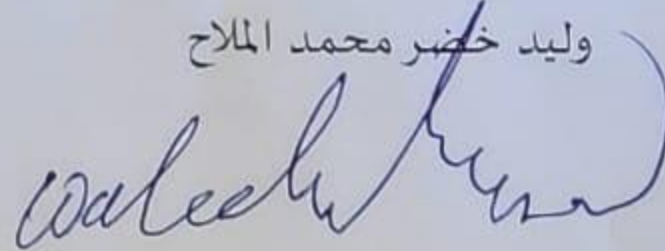 وليد خضر محمد الملاح
waleed